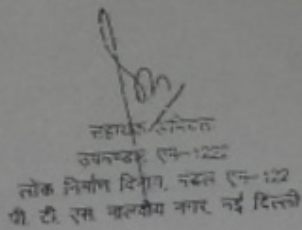 सहायक अभियंता
उपमण्डल एम-1222
लोक निर्माण विभाग, मंडल एम-122
पी. टी. एस. मालवीय नगर, नई दिल्ली